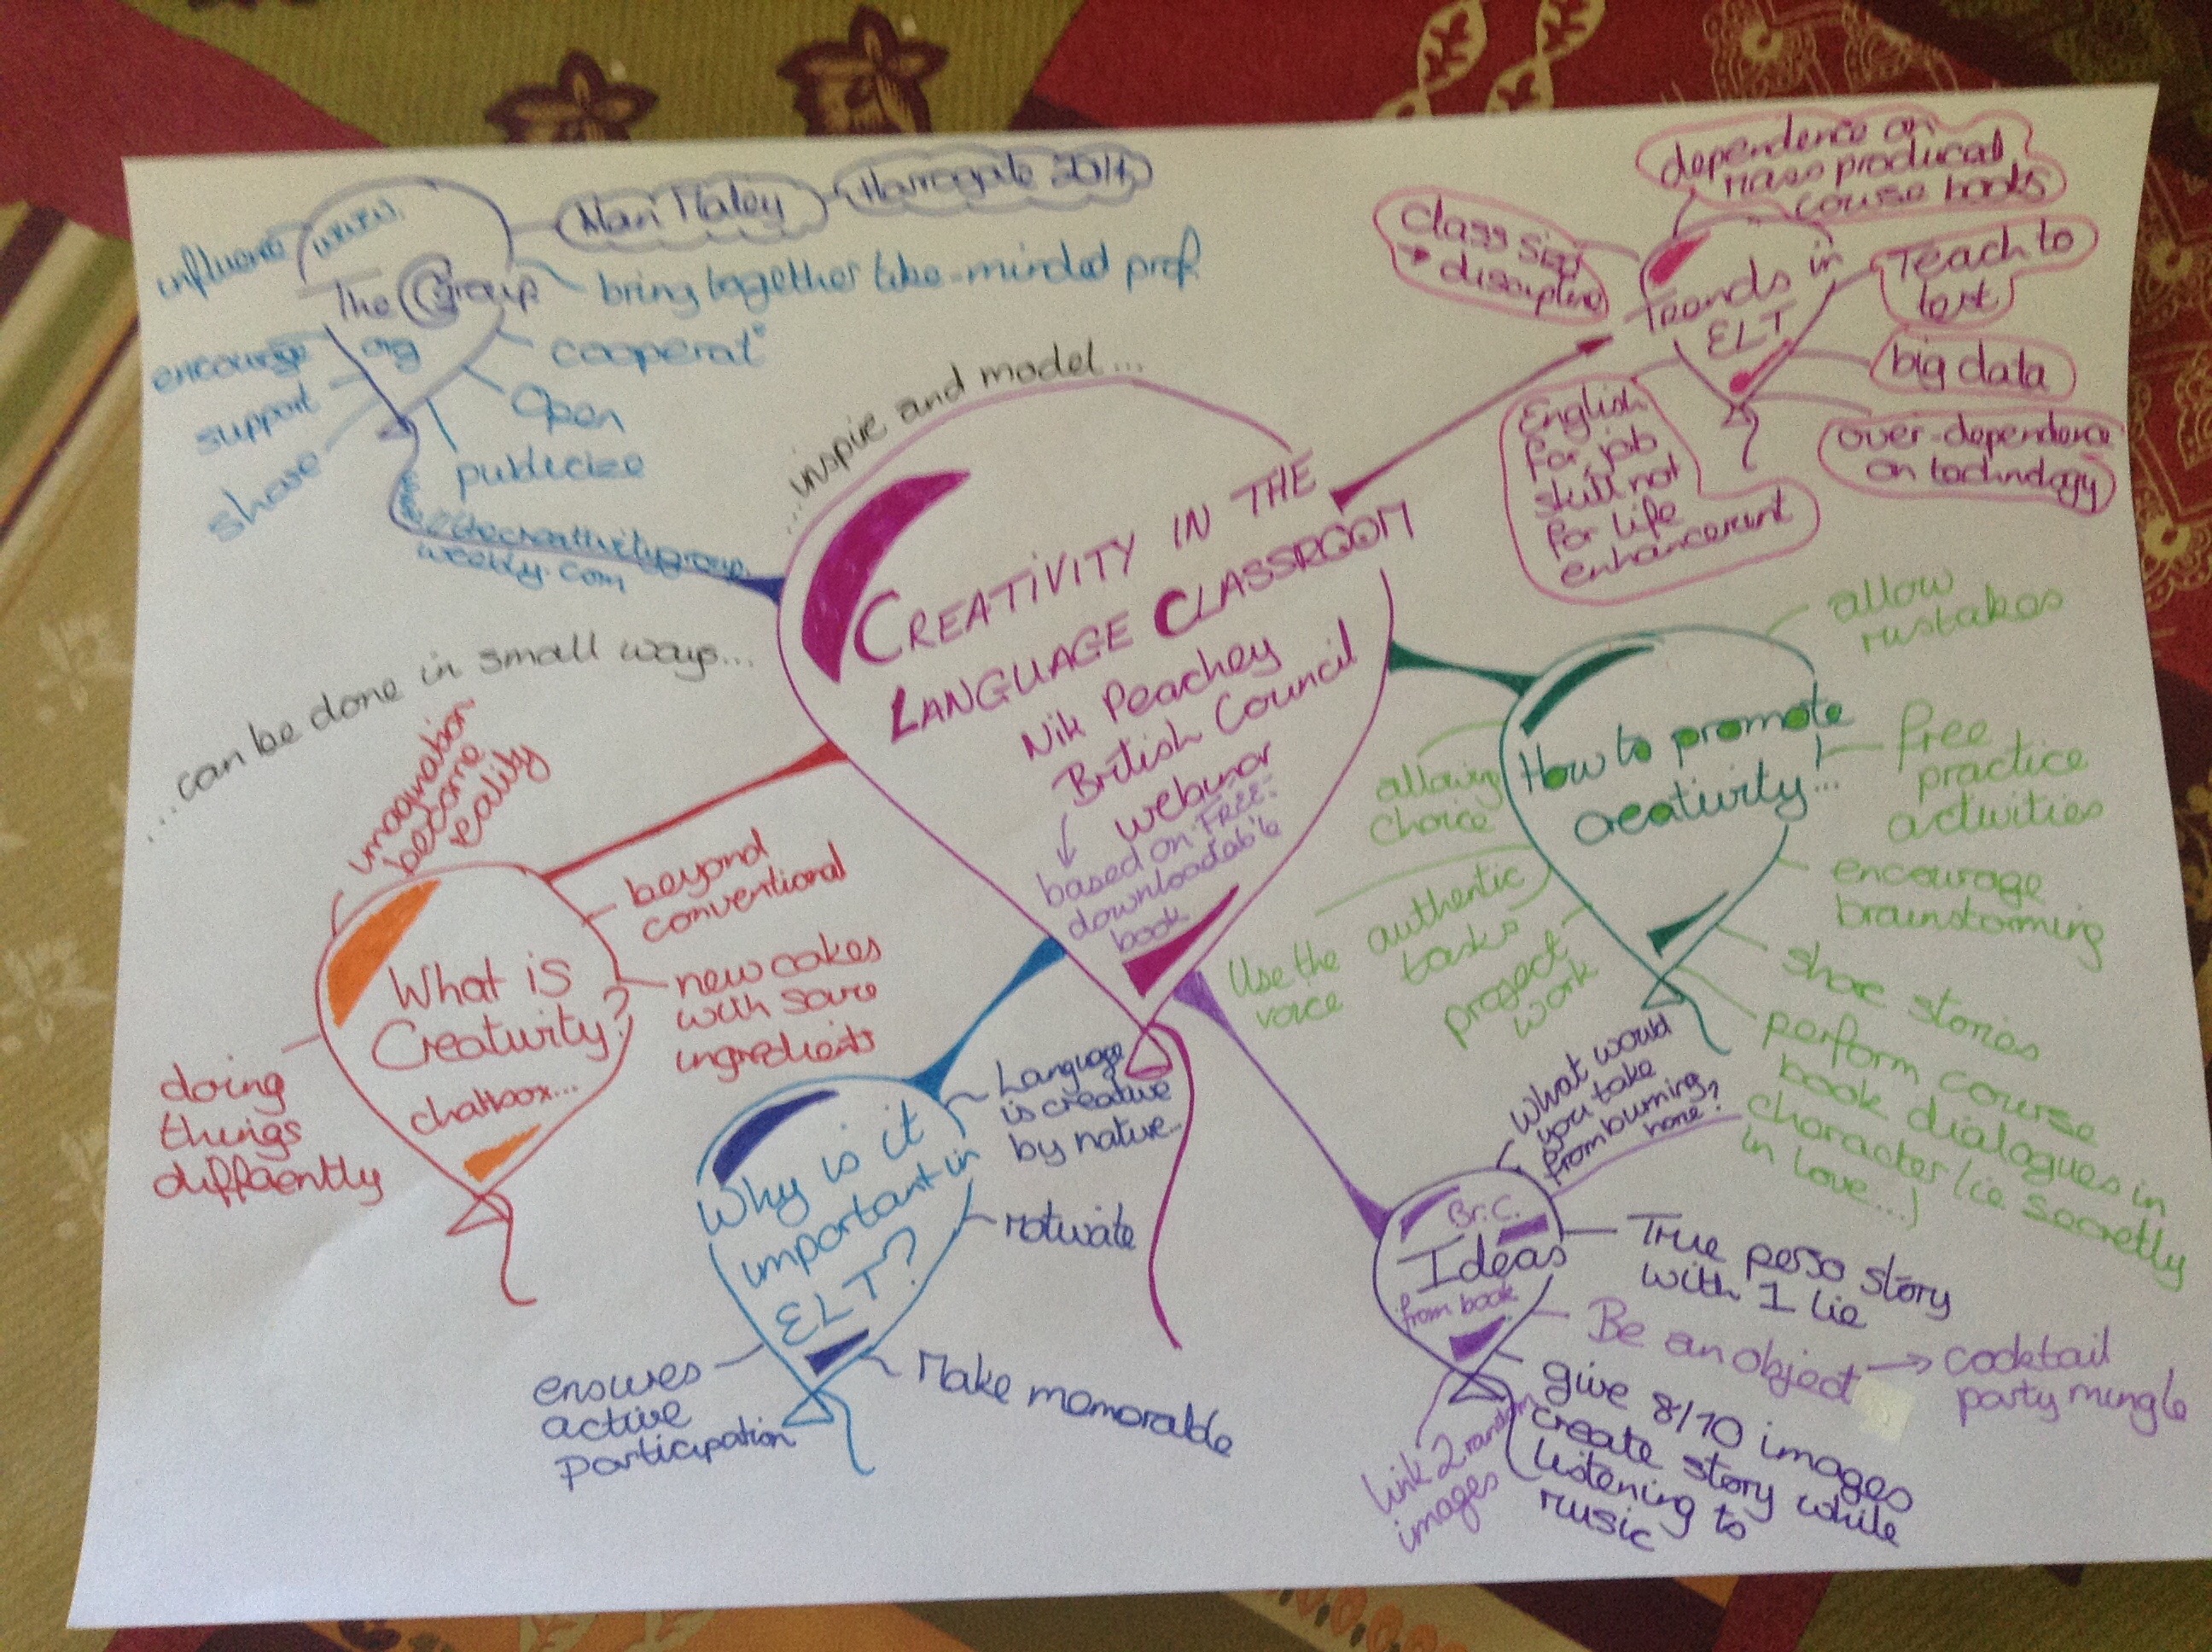 CREATIVITY IN THE
LANGUAGE CLASSROOM
Nik Peachey
British Council
webinar
based on FREE
downloadable
book
...inspire and model...
...can be done in small ways...
The Group
org
Alan Maley
Harrogate 2014
bring together like-minded prof.
cooperat°
Open
publicize
share
support
encourage
influence
thecreativitygroup.
weebly.com
Trends in
ELT
class size
→ discipline
dependence on
mass produced
course books
Teach to
test
big data
over-dependence
on technology
English
for job
skill not
for life
enhancement
How to promote
creativity...
allow
mistakes
free
practice
activities
encourage
brainstorming
share stories
perform course
book dialogues in
character (ie secretly
in love...)
project
work
authentic
tasks
Use the
voice
allowing
choice
Br.C.
Ideas
from book
What would
you take
from burning
home?
True perso story
with 1 lie
Be an object → cocktail
party mingle
give 8/10 images
create story while
listening to
music
link 2 random
images
Why is it
important in
ELT?
Language
is creative
by nature...
motivate
Make memorable
ensures
active
participation
What is
Creativity?
chatbox...
imagination
become
reality
beyond
conventional
new cakes
with same
ingredients
doing
things
differently